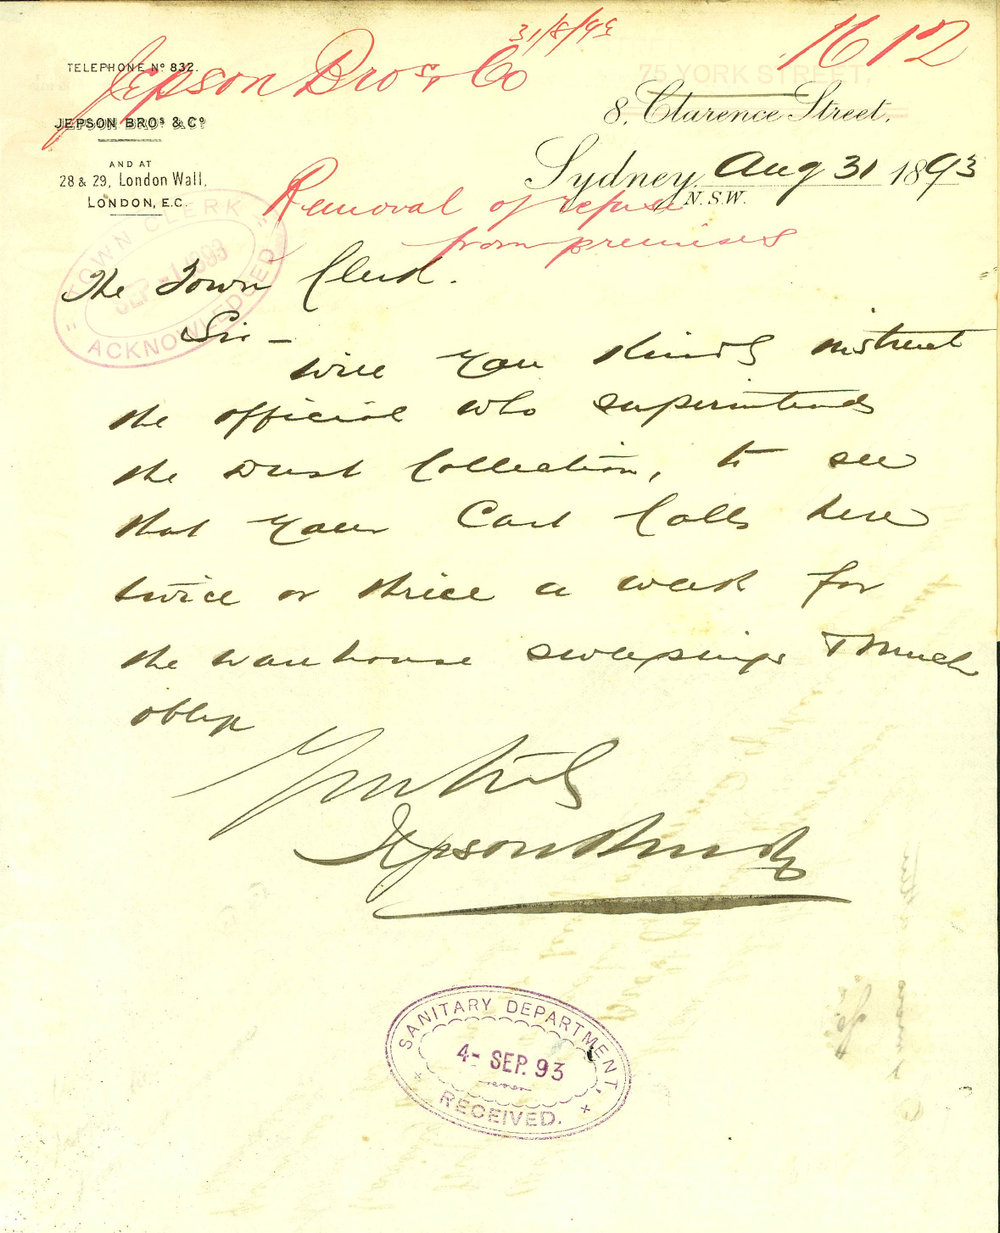 31/8/93
1612
Jepson Bros & Co
TELEPHONE Nº 832.
JEPSON BROS & Cº
AND AT
28 & 29, London Wall,
LONDON, E.C.
75 YORK STREET,
8, Clarence Street,
Sydney, Aug 31 1893
N.S.W.
Removal of refuse
from premises
"TOWN CLERK"
SEP -1 1893
ACKNOWLEDGED
The Town Clerk.
Sir -
Will you kindly instruct
the official who superintends
the Dust Collection, to see
that your Cart Calls here
twice or thrice a week for
the warehouse sweepings & much
oblige
Yours truly
Jepson Bros & Co
SANITARY DEPARTMENT,
4- SEP. 93
RECEIVED.